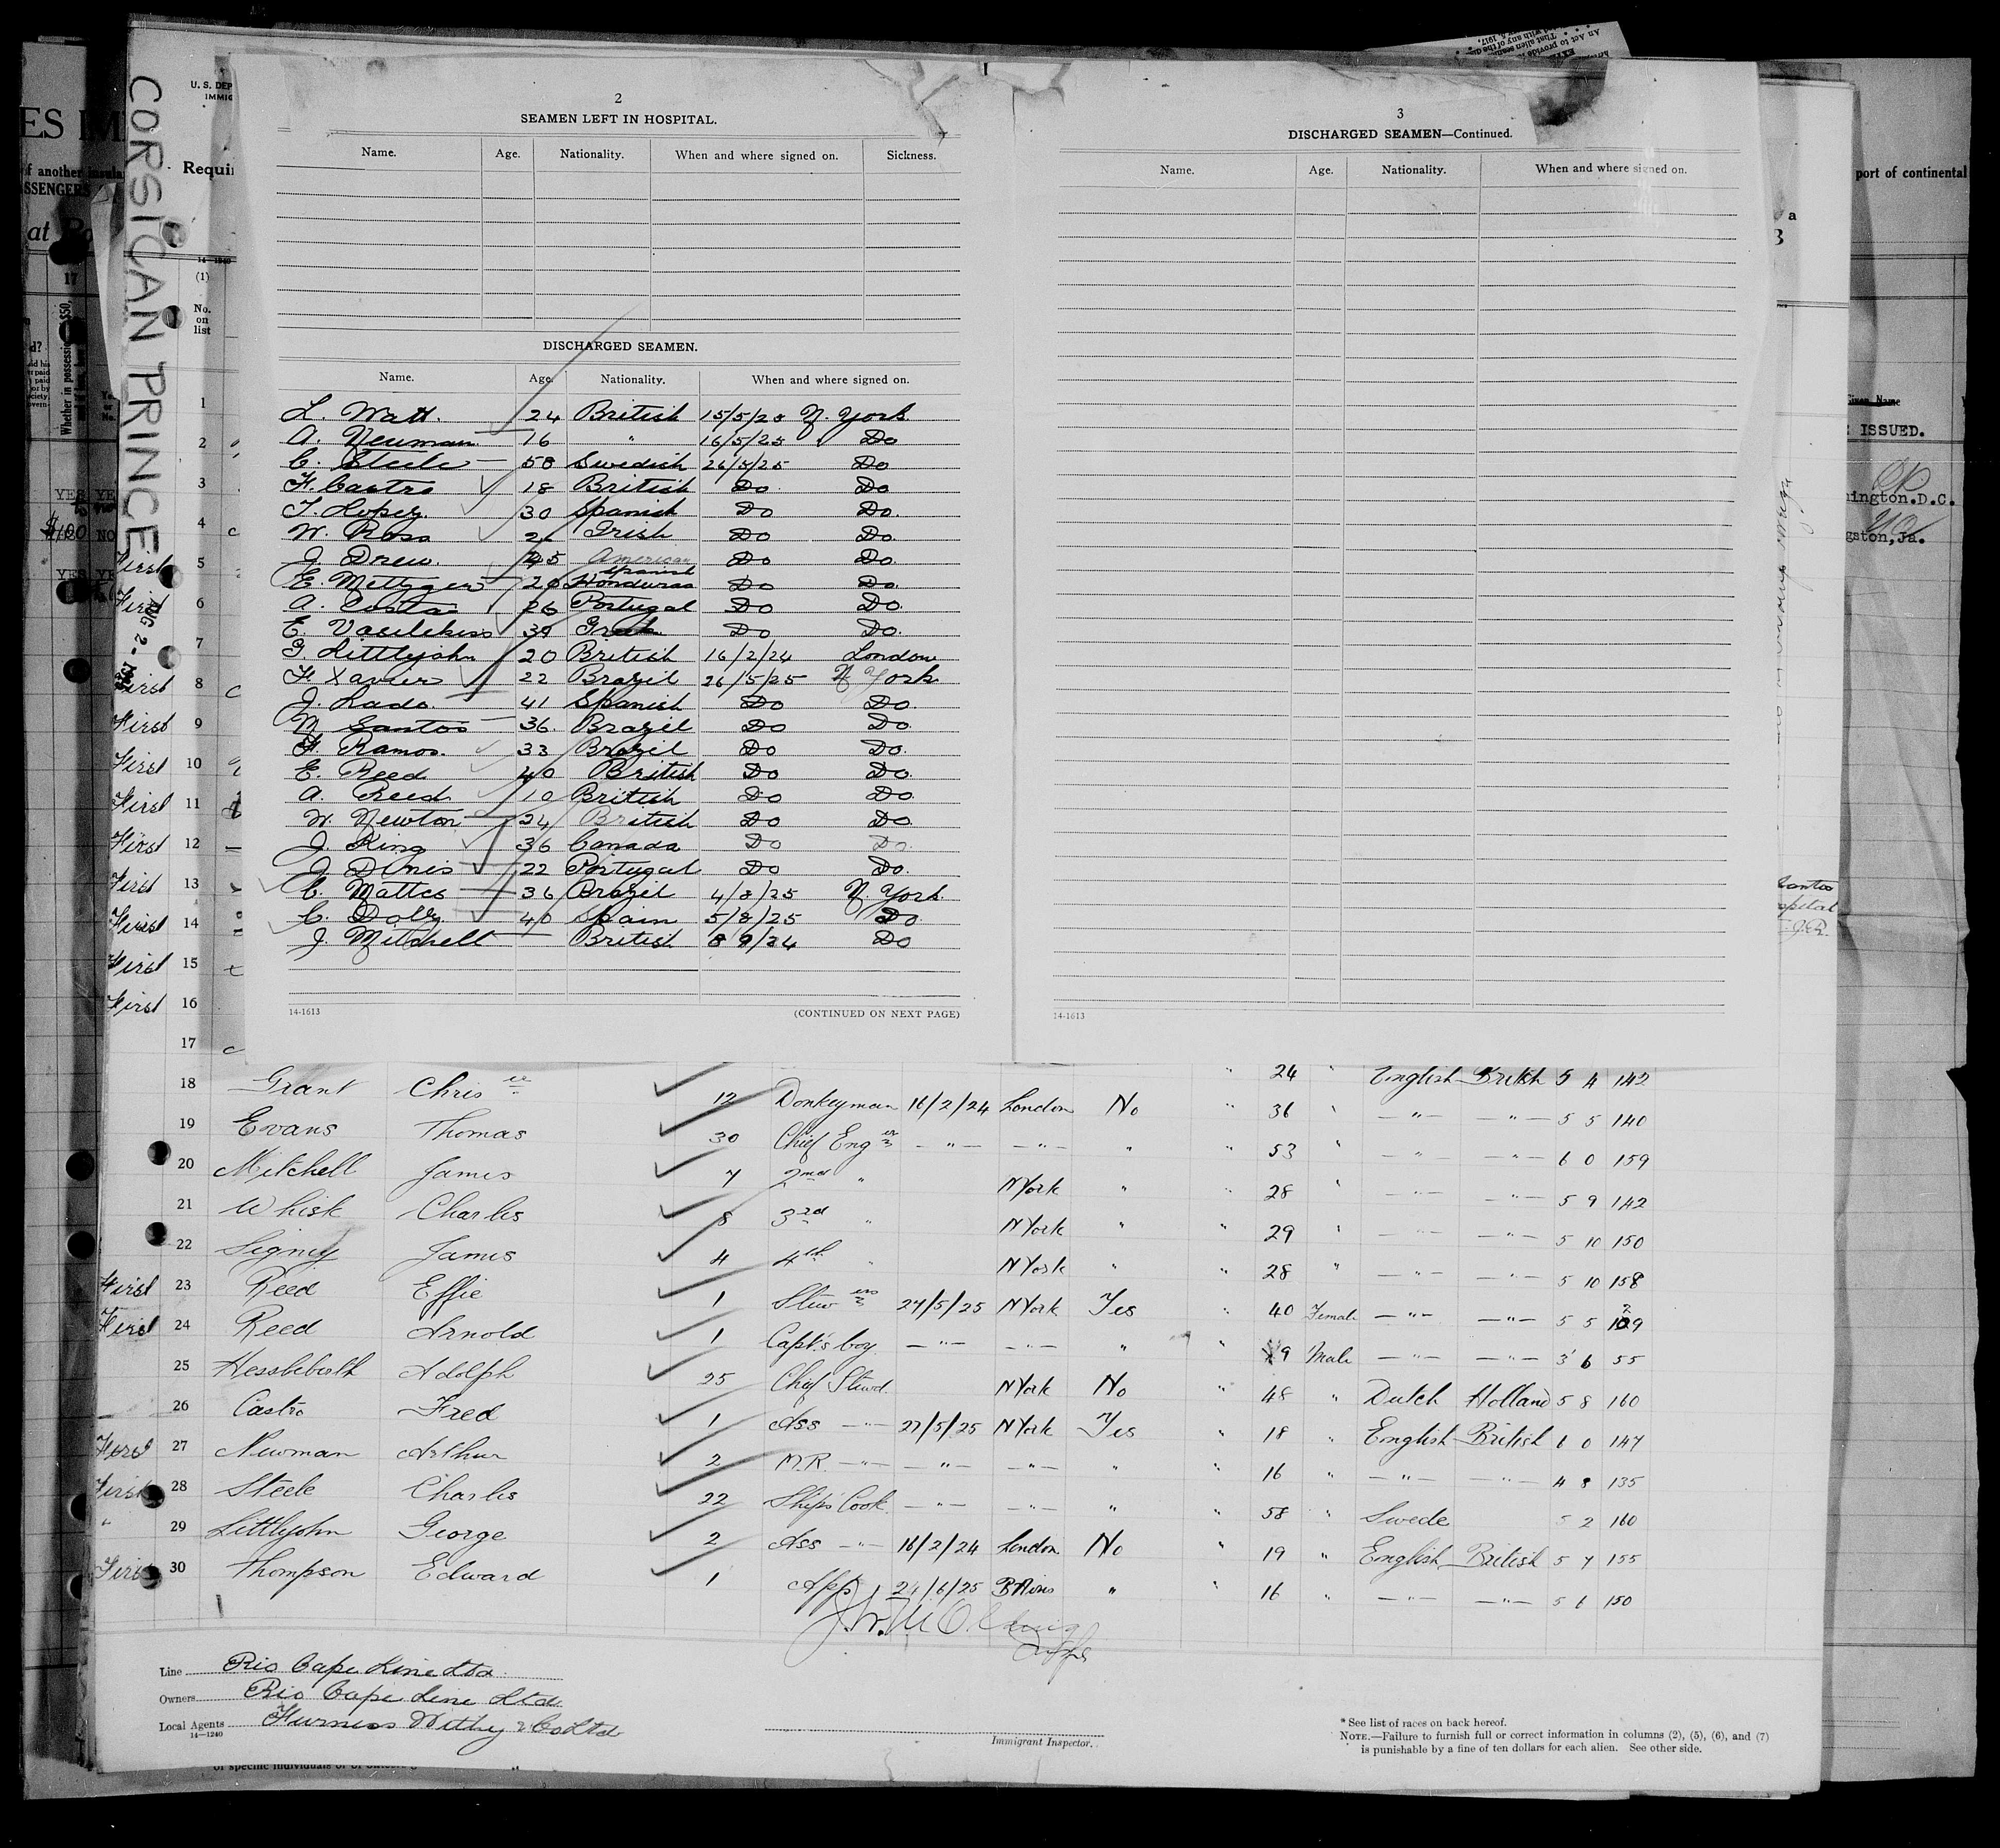 CORSICAN PRINCE
2
SEAMEN LEFT IN HOSPITAL.
Name. Age. Nationality. When and where signed on. Sickness.
DISCHARGED SEAMEN.
Name. Age. Nationality. When and where signed on.
L. Watt. 24 British 15/5/25 N. York
A. Neuman 16 " 16/5/25 Do
C. Steele 58 Swedish 26/5/25 Do
F. Castro 18 British Do Do
T. Lopez. 30 Spanish Do Do.
W. Ross 26 Irish Do Do.
J. Drew. 45 American Do Do.
E. Metzger 20 Spanish Honduras Do Do.
A. Costa 26 Portugal Do Do.
E. 39 Greek Do Do.
G. Littlejohn 20 British 16/2/24 London
F. Xavier 22 Brazil 26/5/25 N York
J. Lado. 41 Spanish Do Do.
M Santos 36. Brazil Do Do.
F. Ramos. 33 Brazil Do Do.
E. Reed 40 British Do Do.
A. Reed 10 British Do Do.
W. Newton 24 British Do Do.
J. King 36 Canada Do Do.
J. Dinis 22 Portugal Do Do.
C. Mattes 36 Brazil 4/8/25 N. York.
C. Dolly. 40 Spain 5/8/25 Do.
J. Mitchell British 8 9/24 Do
14-1613 (CONTINUED ON NEXT PAGE)
3
DISCHARGED SEAMEN—Continued.
Name. Age. Nationality. When and where signed on.
14-1613
" 24 " English British 5 4 142
18 Grant Chris er 12 Donkeyman 16/2/24 London No " 36 " —"— —"— 5 5 140
19 Evans Thomas 30 Chief Eng er —"— —"— " " 53 " —"— —"— 6 0 159
20 Mitchell James 7 2nd " N York " " 28 " —"— —"— 5 9 142
21 Whisk Charles 8 3rd " N York " " 29 " —"— —"— 5 10 150
22 Signey James 4 4th " N York " " 28 " —"— —"— 5 10 158
First 23 Reed Effie 1 Stew ess 27/5/25 N York Yes " 40 Female —"— —"— 5 5 129
First 24 Reed Arnold 1 Capt's boy —"— —"— " " 9 Male —"— —"— 3 6 55
25 Adolph 25 Chief Stwd. N York No " 48 " Dutch Holland 5 8 160
26 Castro Fred 1 Ass —"— 27/5/25 N York Yes " 18 " English British 6 0 147
First 27 Newman Arthur 2 M.R. —"— —"— —"— " " 16 " —"— —"— 4 8 135
First 28 Steele Charles 22 Ships Cook —"— —"— " " 58 " Swede 5 2 160
" 29 Littlejohn George 2 Ass —"— 16/2/24 London No " 19 " English British 5 7 155
First 30 Thompson Edward 1 App. 24/6/25 B Aires " " 16 " —"— —"— 5 6 150
Line Rio Cape Line Ltd.
Owners Rio Cape Line Ltd
Local Agents Furness Withy & Co Ltd
14—1240
Immigrant Inspector.
* See list of races on back hereof.
NOTE.—Failure to furnish full or correct information in columns (2), (5), (6), and (7)
is punishable by a fine of ten dollars for each alien. See other side.
U. S. DEP
IMMIG
Requi
14—1240
(1)
No.
on
list
1
2
3
4
First 5
First 6
7
First 8
First 9
First 10
First 11
First 12
First 13
First 14
First 15
First 16
17
port of continental
Given Name
ISSUED.
ington.D.C.
gston,Ja.